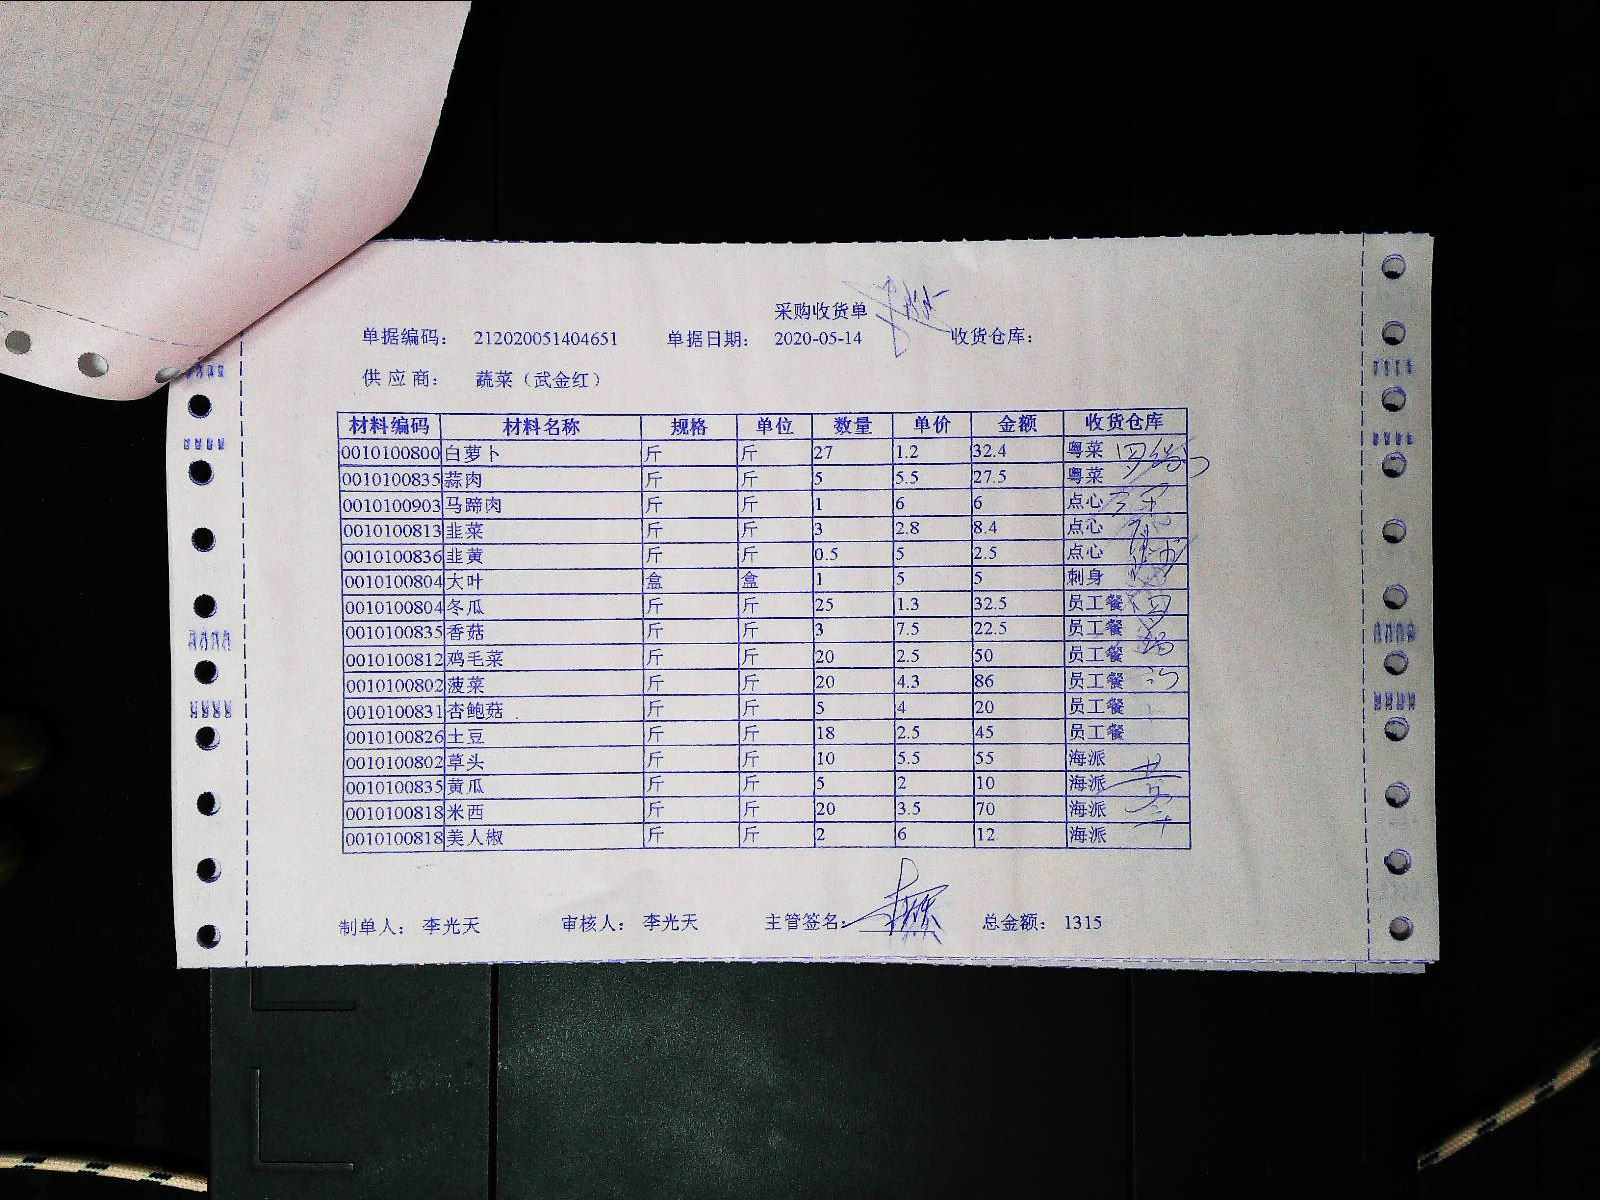 采购收货单
单据编码： 212020051404651 单据日期： 2020-05-14 收货仓库：
供应商： 蔬菜（武金红）
材料编码 材料名称 规格 单位 数量 单价 金额 收货仓库
0010100800 白萝卜 斤 斤 27 1.2 32.4 粤菜
0010100835 蒜肉 斤 斤 5 5.5 27.5 粤菜
0010100903 马蹄肉 斤 斤 1 6 6 点心
0010100813 韭菜 斤 斤 3 2.8 8.4 点心
0010100836 韭黄 斤 斤 0.5 5 2.5 点心
0010100804 大叶 盒 盒 1 5 5 刺身
0010100804 冬瓜 斤 斤 25 1.3 32.5 员工餐
0010100835 香菇 斤 斤 3 7.5 22.5 员工餐
0010100812 鸡毛菜 斤 斤 20 2.5 50 员工餐
0010100802 菠菜 斤 斤 20 4.3 86 员工餐
0010100831 杏鲍菇 斤 斤 5 4 20 员工餐
0010100826 土豆 斤 斤 18 2.5 45 员工餐
0010100802 草头 斤 斤 10 5.5 55 海派
0010100835 黄瓜 斤 斤 5 2 10 海派
0010100818 米西 斤 斤 20 3.5 70 海派
0010100818 美人椒 斤 斤 2 6 12 海派
制单人： 李光天 审核人： 李光天 主管签名： 总金额： 1315